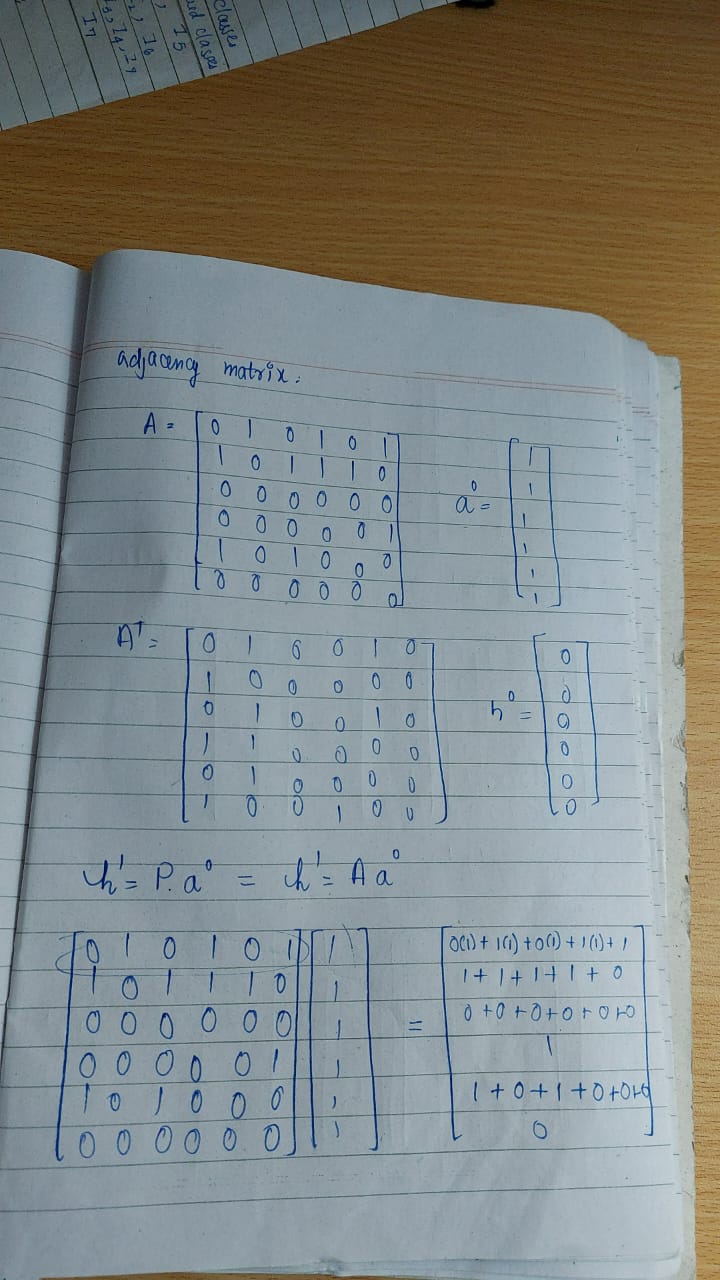 classes
uid classes
I5
I2, I6
I3, I4, I9
I7
adjacency matrix:
A = [ 0 1 0 1 0 1
1 0 1 1 1 0
0 0 0 0 0 0
0 0 0 0 0 1
1 0 1 0 0 0
0 0 0 0 0 0 ]
a⁰ = [ 1
1
1
1
1
1 ]
Aᵀ = [ 0 1 0 0 1 0
1 0 0 0 0 0
0 1 0 0 1 0
1 1 0 0 0 0
0 1 0 0 0 0
1 0 0 1 0 0 ]
h⁰ = [ 0
0
0
0
0
0 ]
h¹ = P. a⁰ = h¹ = A a⁰
[ 0 1 0 1 0 1 ] [ 1 ] [ 0(1) + 1(1) + 0(1) + 1(1) + 1 ]
1 0 1 1 1 0 1 1 + 1 + 1 + 1 + 0
0 0 0 0 0 0 1 = 0 + 0 + 0 + 0 + 0 + 0
0 0 0 0 0 1 1 1
1 0 1 0 0 0 1 1 + 0 + 1 + 0 + 0 + 0
0 0 0 0 0 0 1 0